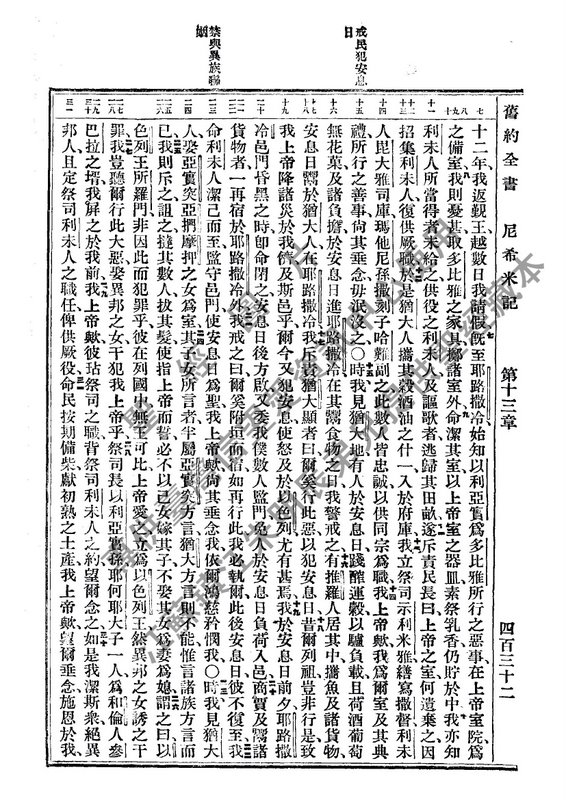 舊約全書 尼希米記 第十三章 四百三十二
戒民犯安息日
禁與異族聯姻
十二年我返覲王越數日我請假既至耶路撒冷始知以利亞實爲多比雅所行之惡事在上帝室院爲
之備室我則憂甚取多比雅之家具擲諸室外命潔其室以上帝室之器皿素祭乳香仍貯於中我亦知
利未人所當得者未給之供役之利未人及謳歌者逃歸其田畝遂斥責民長曰上帝之室何遺棄之因
招集利未人復供厥職於是猶大人攜其穀酒油之什一入於府庫我立祭司示利米雅繕寫撒督利未
人毘大雅司庫瑪他尼孫撒刻子哈難副之此數人皆忠誠以供同宗爲職我上帝歟我爲爾室及其典
禮所行之善事尚其垂念毋泯沒之〇時我見猶大地有人於安息日踐醡運穀以驢負載且荷酒葡萄
無花菓及諸負擔於安息日進耶路撒冷在其鬻食物之日我警戒之有推羅人居其中攜魚及諸貨物
安息日鬻於猶大人在耶路撒冷我斥責猶大顯者曰爾奚行此惡以犯安息日昔爾列祖豈非行是致
我上帝降諸災於我儕及斯邑乎爾今又犯安息使怒及於以色列尤有甚焉於安息日前夕耶路撒
冷邑門昏黑之時卽命閉之安息日後方啟又委我僕數人監門免人於安息日負荷入邑商賈及鬻諸
貨物者一再宿於耶路撒冷外我戒之曰爾奚附垣而宿如再行此我必執爾此後安息日彼不復至我
命利未人潔己而至監守邑門使安息日爲聖我上帝歟尚其垂念我依爾鴻慈矜憫我〇時我見猶大
人娶亞實突亞捫摩押之女爲室其子女所言者半屬亞實突方言猶大方言則不能惟言諸族方言而
已我則斥之詛之撻其數人拔其髮使指上帝而誓必不以己女嫁其子不娶其女爲妻爲媳謂之曰以
色列王所羅門非因此而犯罪乎彼在列國中無王可比上帝愛之立爲以色列王然異邦之女誘之干
罪我豈聽爾行此大惡娶異邦之女干犯我上帝乎祭司長以利亞實孫耶何耶大子一人爲和倫人參
巴拉之壻我屏之於我前我上帝歟彼玷祭司之職背祭司利未人之約望爾念之如是我潔斯衆絕異
邦人且定祭司利未人之職任俾供厥役命民按期備柴獻初熟之土產我上帝歟望爾垂念施恩於我